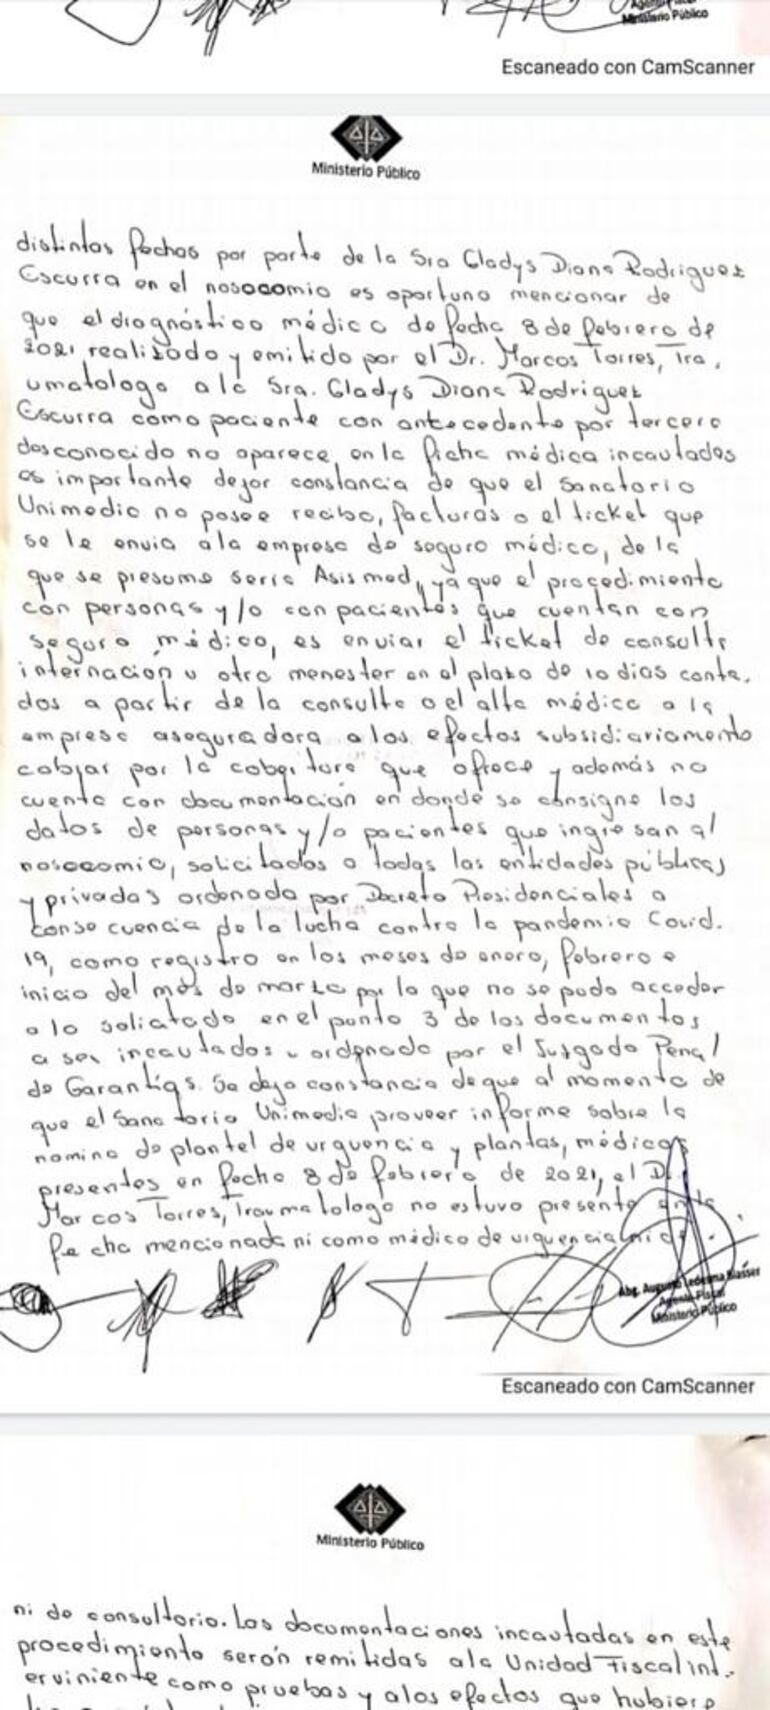 Agente Fiscal
Ministerio Público
Escaneado con CamScanner
Ministerio Público
distintas fechas por parte de la Sra Gladys Diana Rodriguez
Escurra en el nosocomio es oportuno mencionar de
que el diagnóstico médico de fecha 8 de febrero de
2021 realizado y emitido por el Dr. Marcos Torres, Tra,
umatologo a la Sra. Gladys Diana Rodriguez
Escurra como paciente con antecedente por tercero
desconocido no aparece en la ficha médica incautadas
es importante dejar constancia de que el Sanatorio
Unimedic no posee recibo, facturas o el ticket que
se le envia a la empresa de seguro médico, de la
que se presume seria Asismed, ya que el procedimiento
con personas y/o con pacientes que cuentan con
seguro médico, es enviar el ticket de consulta
internación u otro menester en el plazo de 10 dias conta,
dos a partir de la consulta o el alta médica a la
empresa aseguradora a los efectos subsidiariamento
cobrar por la cobertura que ofrece y además no
cuenta con documentación en donde se consigne los
datos de personas y/o pacientes que ingresan al
nosocomio, solicitados a todas las entidades públicas
y privadas ordenada por Decreto Presidenciales a
consecuencia de la lucha contra la pandemia Covid.
19, como registro en los meses de enero, febrero e
inicio del mes de marzo por lo que no se pudo acceder
a lo solicitado en el punto 3 de los documentos
a ser incautados u ordenado por el Juzgado Penal
de Garantias. Se deja constancia de que al momento de
que el Sanatorio Unimedic proveer informe sobre la
nomina de plantel de urguencia y plantas, médicos
presentes en fecha 8 de febrero de 2021, el Dr.
Marcos Torres, Traumatologo no estuvo presente en la
fecha mencionada ni como médico de urguencia
Abg. Augusto Ledesma Blasser
Agente Fiscal
Ministerio Público
Escaneado con CamScanner
Ministerio Público
ni de consultorio. Las documentaciones incautadas en este
procedimiento serán remitidas a la Unidad Fiscal int.
erviniente como pruebas y a los efectos que hubiere